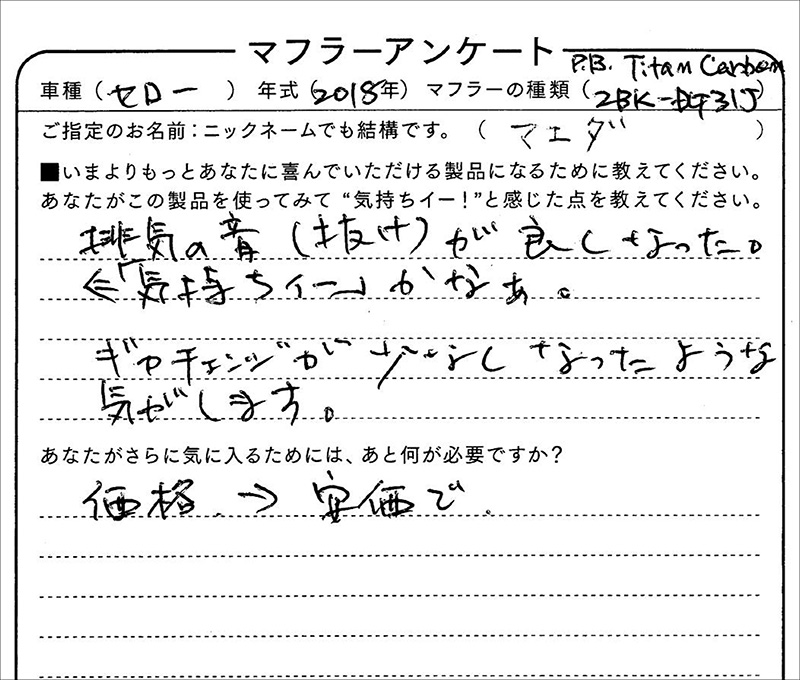 マフラーアンケート
P.B. Titan Carbon
車種（セロー）年式（2018年）マフラーの種類（2BK-DG31J）
ご指定のお名前：ニックネームでも結構です。（マエダ）
■いまよりもっとあなたに喜んでいただける製品になるために教えてください。
あなたがこの製品を使ってみて“気持ちイー！”と感じた点を教えてください。
排気の音（抜け）が良くなった。
⇐「気持ちイー」かなぁ。
ギヤチェンジが少なくなったような
気がします。
あなたがさらに気に入るためには、あと何が必要ですか？
価格.→安価で.